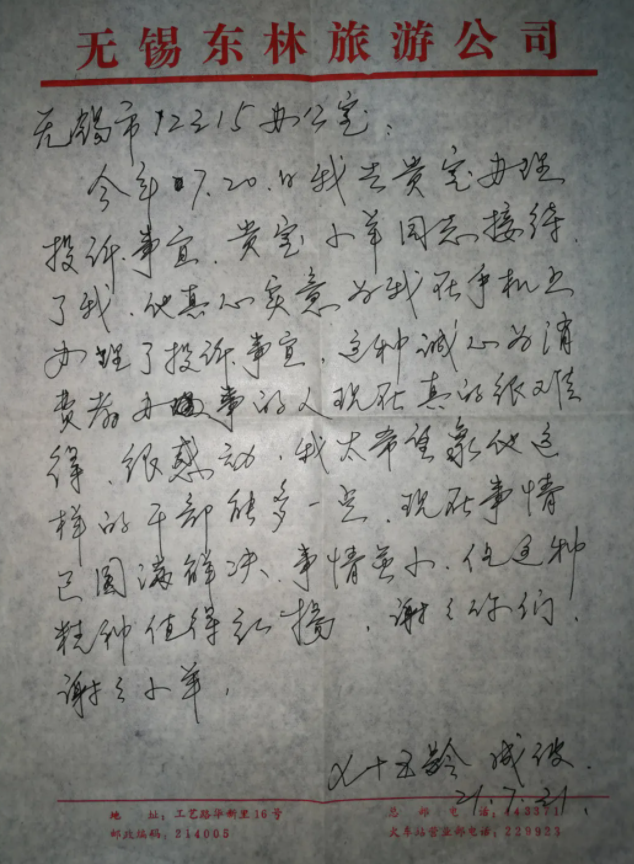 无锡东林旅游公司
无锡市12315办公室：
今年7.20.日我去贵室办理
投诉事宜．贵室小羊同志接待．
了我．他真心实意为我在手机上
办理了投诉事宜．这种诚心为消
费者办事的人现在真的很难
得．很感动．我太希望象他这
样的干部能多一点．现在事情
已圆满解决．事情虽小．但这种
精神值得弘扬．谢谢你们．
谢谢小羊．
七十五龄
21.7.21.
地　址：工艺路华新里16号　总　邮　电　话：443371
邮政编码：214005　火车站营业部电话：229923